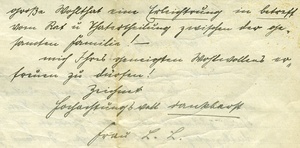 große Wohlthat eine Erleichterung in betreff
vom Rat u. Thaterteilung zwischen der ge-
samten Familie! —
mich Ihres geneigten Wohlwollens er-
freuen zu dürfen!
Zeichnet
Hochachtungsvoll dankbarst
Frau L. L.